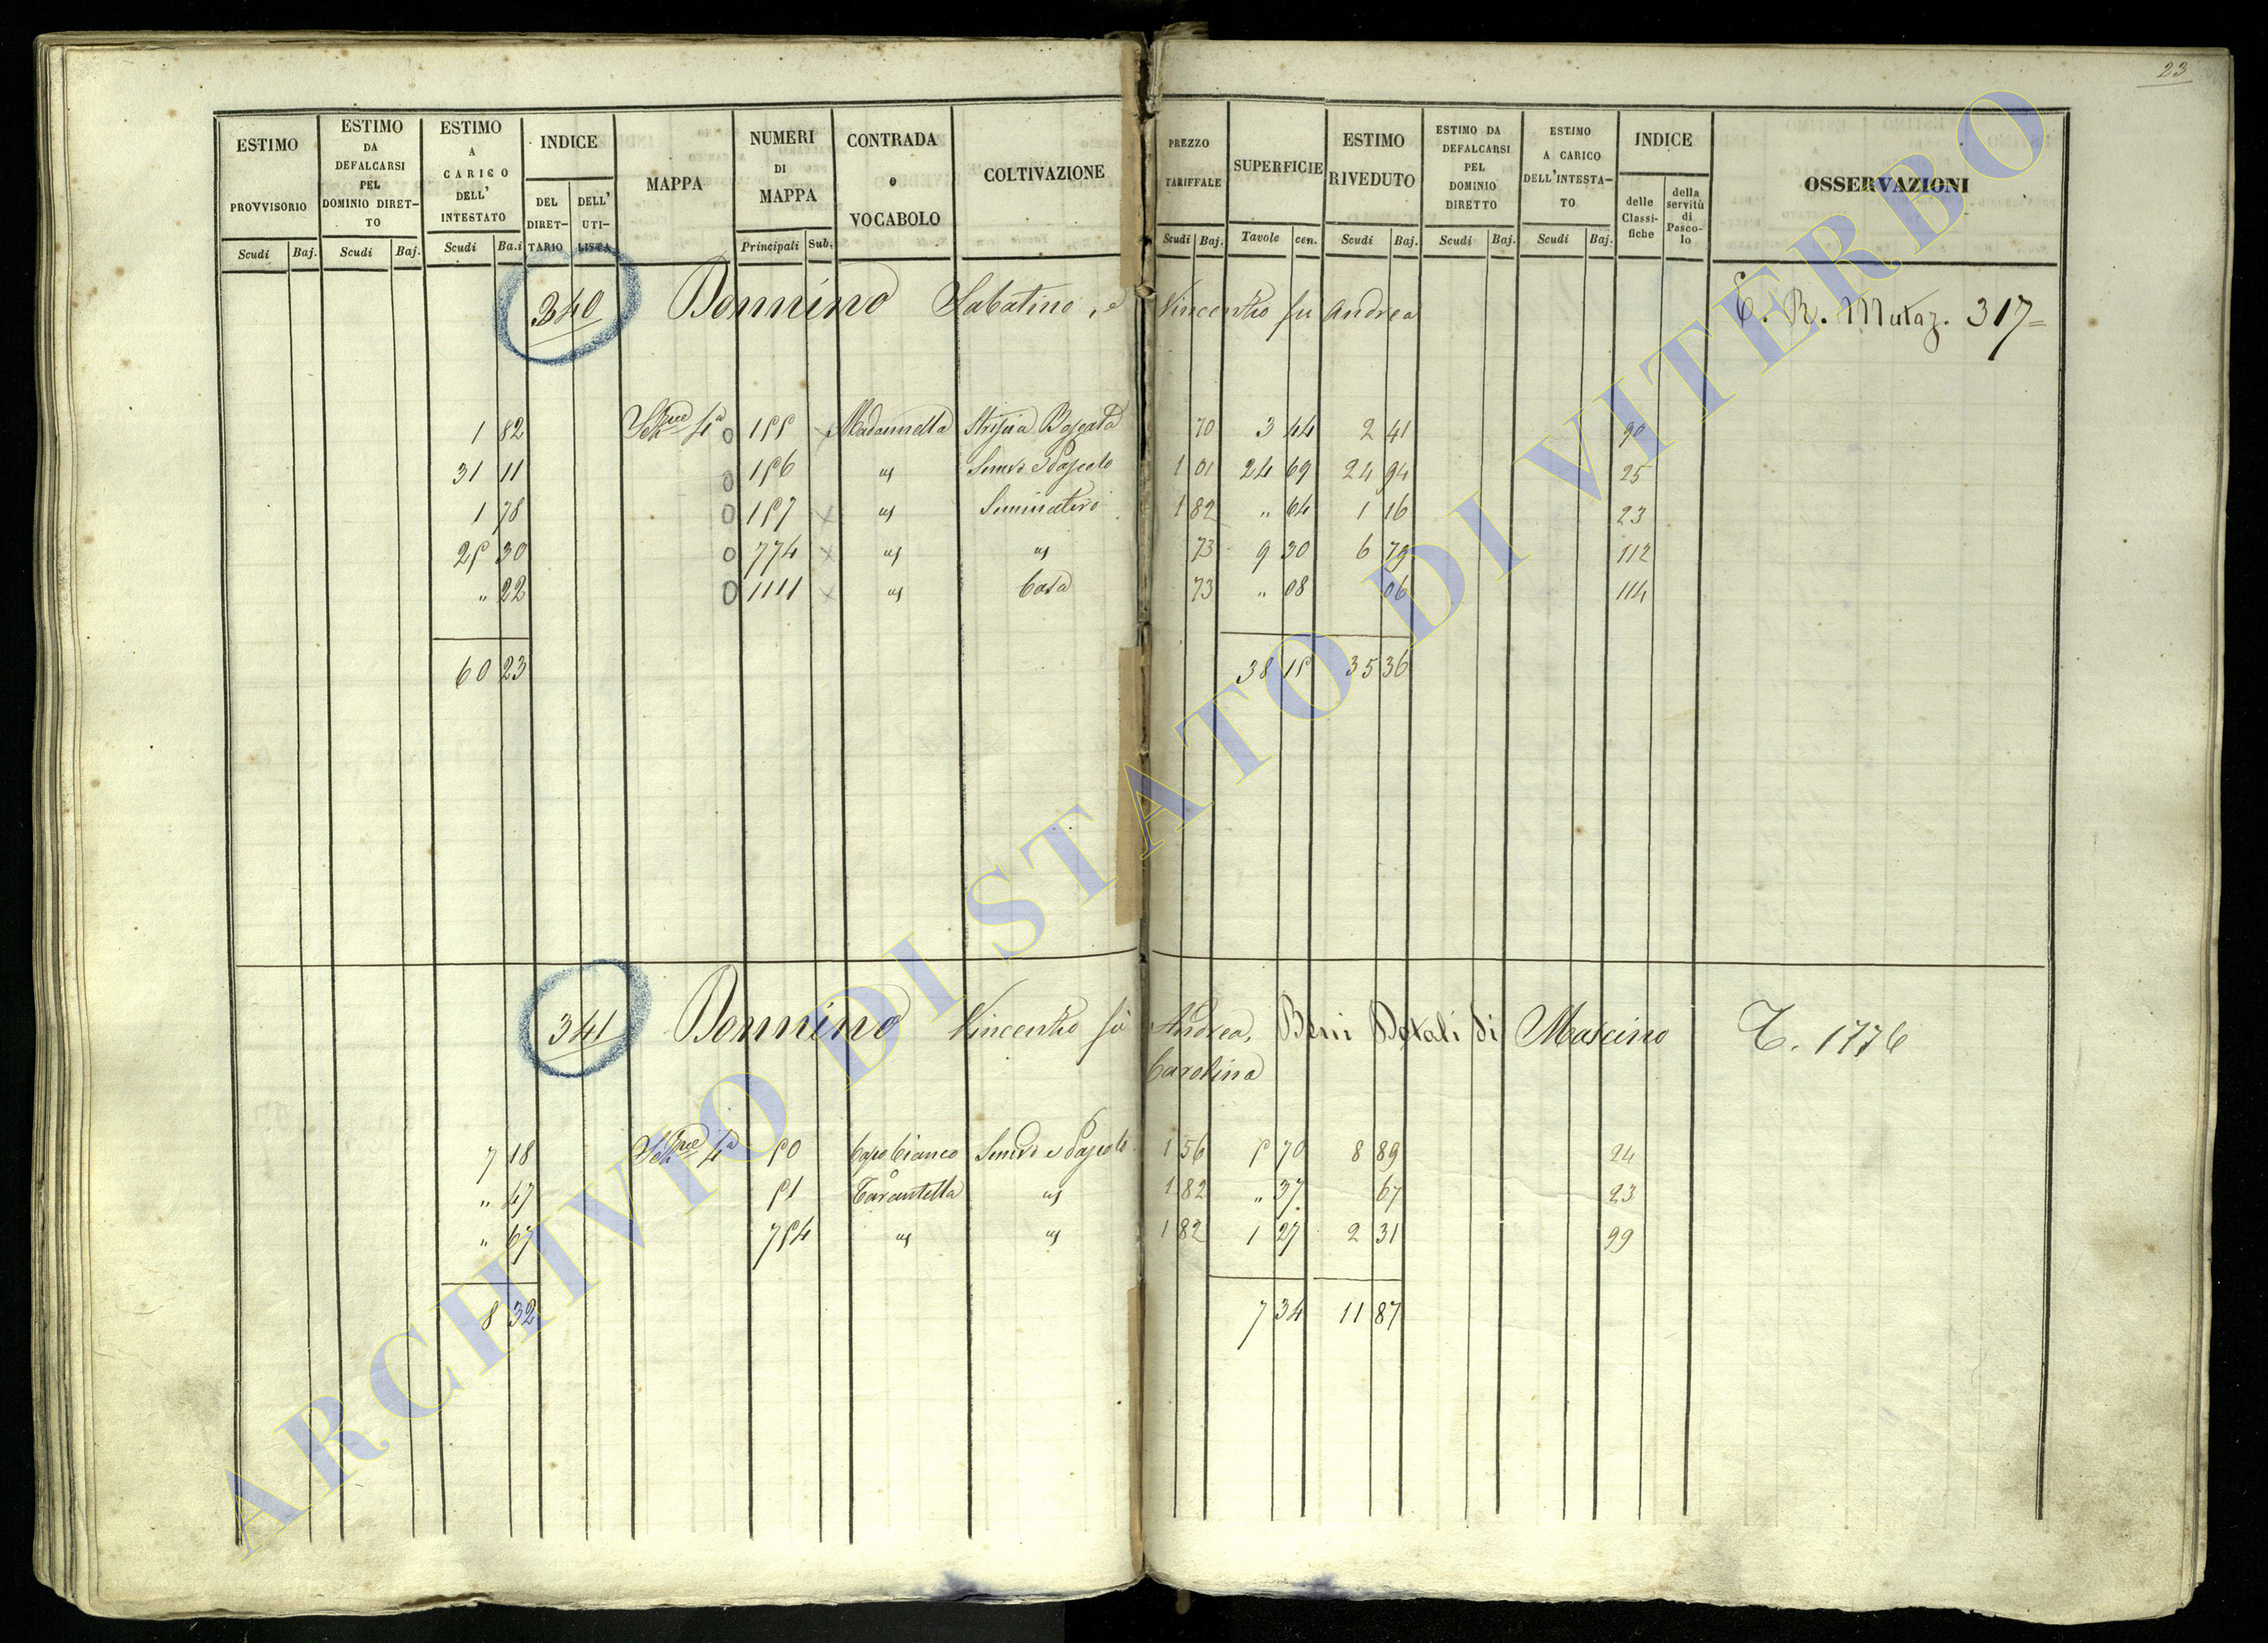 23
ESTIMO PROVVISORIO | ESTIMO DA DEFALCARSI PEL DOMINIO DIRETTO | ESTIMO A CARICO DELL' INTESTATO | INDICE | MAPPA | NUMERI DI MAPPA | CONTRADA o VOCABOLO | COLTIVAZIONE | PREZZO TARIFFALE | SUPERFICIE | ESTIMO RIVEDUTO | ESTIMO DA DEFALCARSI PEL DOMINIO DIRETTO | ESTIMO A CARICO DELL'INTESTATO | INDICE | OSSERVAZIONI
DEL DIRETTARIO | DELL' UTILISTA | delle Classifiche | della servitù di Pascolo
Scudi | Baj. | Scudi | Baj. | Scudi | Ba.i | Principali | Sub. | Scudi | Baj. | Tavole | cen. | Scudi | Baj. | Scudi | Baj. | Scudi | Baj.
340 Donnino Sabatino, e Vincenzo fu Andrea C. R. Mutaz. 317=
1 82 | 4a | 0 155 | Madonnella | 70 | 3 44 | 2 41 | 90
31 11 | 0 156 | " | Semvo e Pascolo | 1 01 | 24 69 | 24 94 | 25
1 78 | 0 157 x | " | Seminativo | 1 82 | " 64 | 1 16 | 23
25 30 | 0 774 x | " | " | 73 | 9 30 | 6 79 | 112
" 22 | 0 1111 x | " | Casa | 73 | " 08 | 06 | 114
60 23 | 38 15 | 35 36
341 Donnino Vincenzo fu Andrea, Beni Dotali di Mascino C. 1776
Carolina
7 18 | 4a | 50 | Capo Bianco | Semvo e Pascolo | 1 56 | 5 70 | 8 89 | 24
" 47 | 51 | Tarantella | " | 1 82 | " 37 | 67 | 23
" 67 | 754 | " | " | 1 82 | 1 27 | 2 31 | 99
8 32 | 7 34 | 11 87
ARCHIVIO DI STATO DI VITERBO